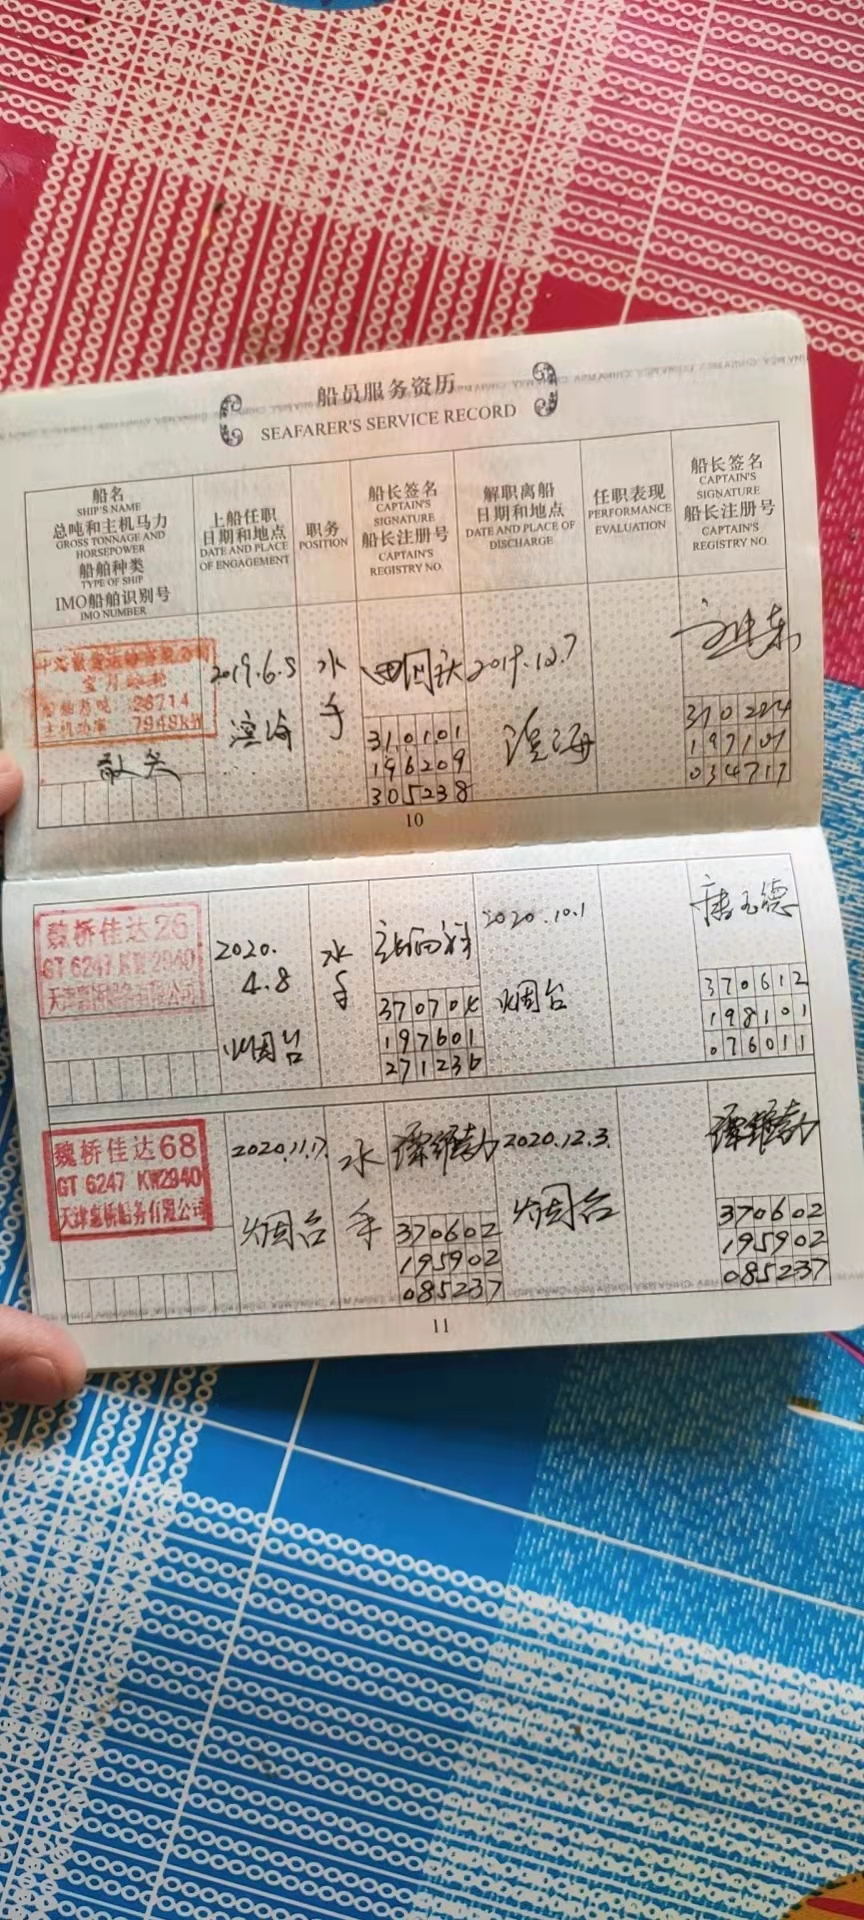 船员服务资历
SEAFARER'S SERVICE RECORD
船名
SHIP'S NAME
总吨和主机马力
GROSS TONNAGE AND
HORSEPOWER
船舶种类
TYPE OF SHIP
IMO船舶识别号
IMO NUMBER
上船任职
日期和地点
DATE AND PLACE
OF ENGAGEMENT
职务
POSITION
船长签名
CAPTAIN'S
SIGNATURE
船长注册号
CAPTAIN'S
REGISTRY NO.
解职离船
日期和地点
DATE AND PLACE OF
DISCHARGE
任职表现
PERFORMANCE
EVALUATION
船长签名
CAPTAIN'S
SIGNATURE
船长注册号
CAPTAIN'S
REGISTRY NO.
28714
主机功率 7948KW
散货
2019.6.5
水
手
310101
196209
305238
2019.12.7
197107
034717
10
魏桥佳达26
GT 6247 KW 2940
2020.
4.8
烟台
水
手
197601
271236
2020.10.1
烟台
370612
198101
076011
魏桥佳达68
GT 6247 KW2940
天津惠桥船务有限公司
2020.11.7
烟台
水
手
370602
195902
085237
2020.12.3.
烟台
370602
195902
085237
11